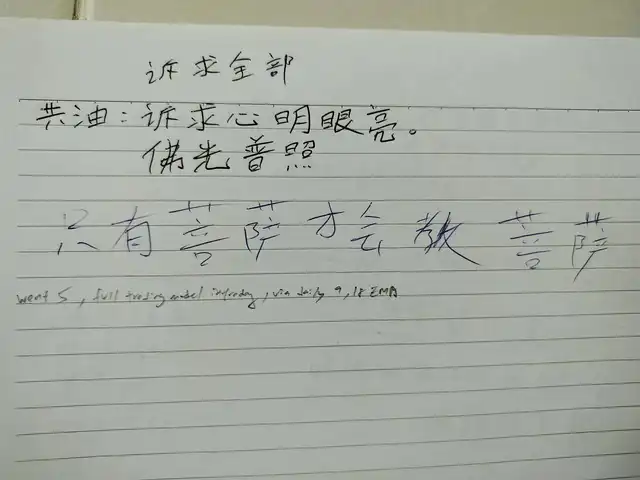 诉求全部
共油：诉求心明眼亮。
佛光普照
只有菩萨才会敬菩萨
went 5, full trading model intraday, via daily 9, 18 EMA